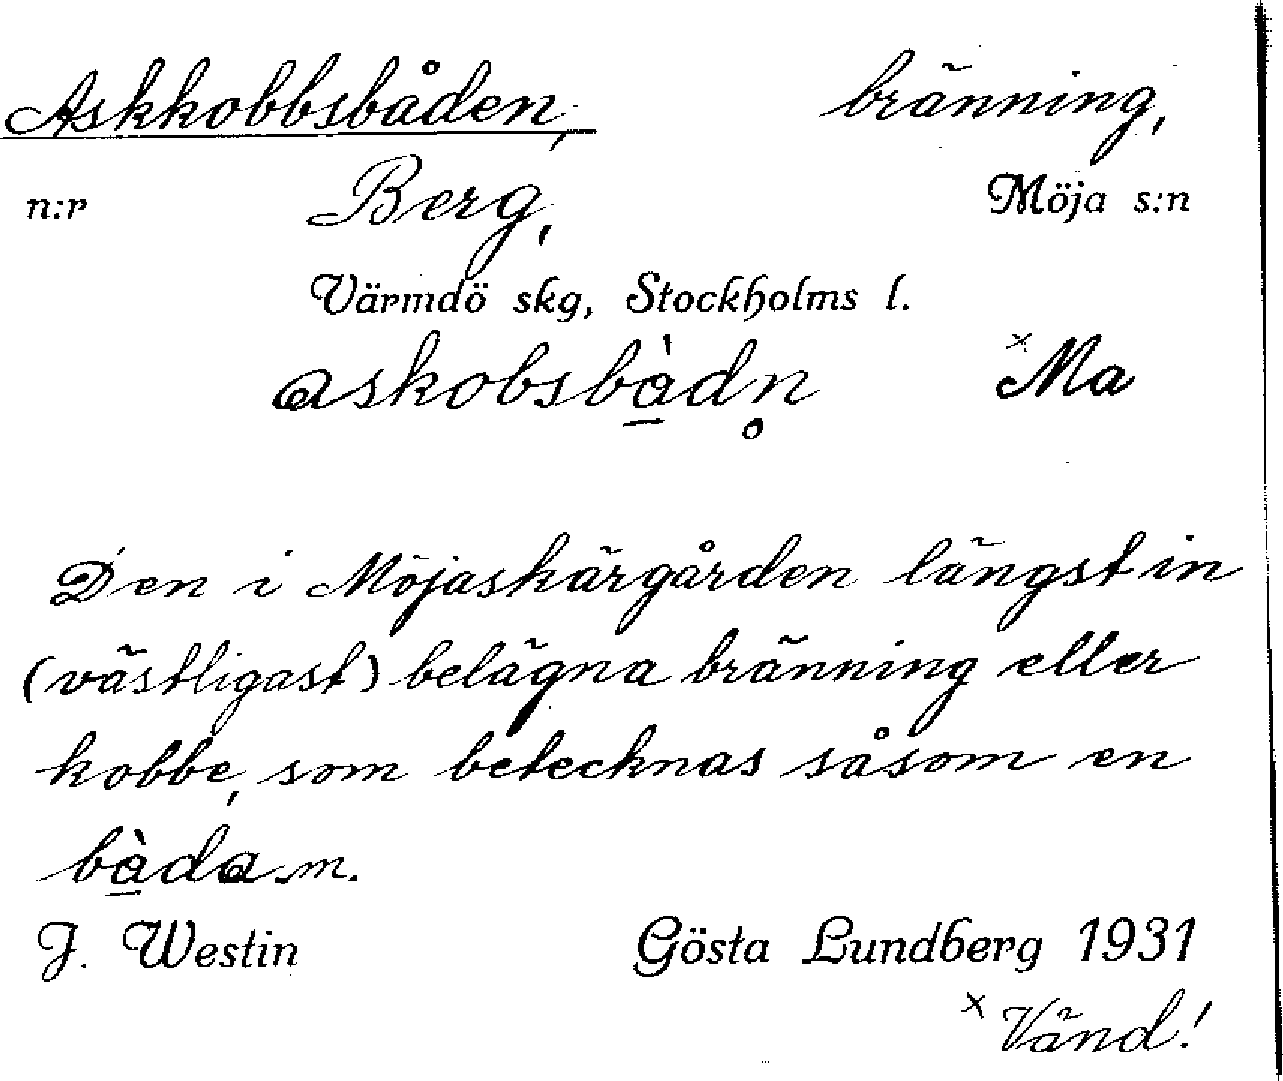 Askkobbsbåden, bränning,
n:r Berg, Möja s:n
Värmdö skg, Stockholms l.
askobsbàd̥n ×Ma
Den i Möjaskärgården längst in
(västligast) belägna bränning eller
kobbe, som betecknas såsom en
bàda m.
J. Westin Gösta Lundberg 1931
× Vänd!